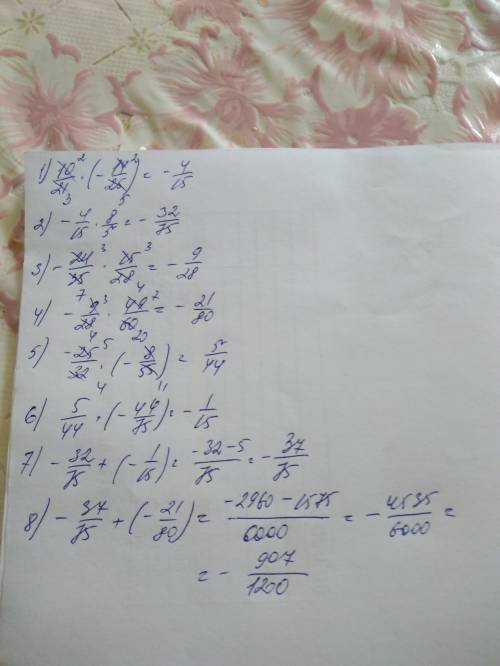 1) 10/21 · (- 14/25) = - 4/15
2) - 4/15 · 8/5 = - 32/75
3) - 24/35 · 15/28 = - 9/28
4) - 9/28 · 49/60 = - 21/80
5) - 25/32 · (- 8/55) = 5/44
6) 5/44 · (- 44/75) = - 1/15
7) - 32/75 + (- 1/15) = -32-5/75 = - 37/75
8) - 37/75 + (- 21/80) = -2960-1575/6000 = - 4535/6000 =
= - 907/1200